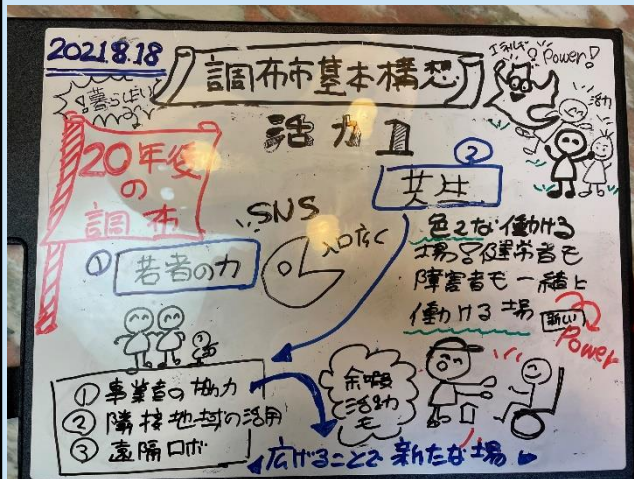 2021.8.18
調布市基本構想
エネルギー Power!
活力
暮らし
活力 1
20年後
の
調布
②
共生
SNS
入口広く
① 若者の力
色々な働ける
場♡健常者も
障害者も一緒に
働ける場
新しい
Power
① 事業者の協力
② 隣接地域の活用
③ 遠隔ロボ
余暇
活動
も
広げることで新たな場